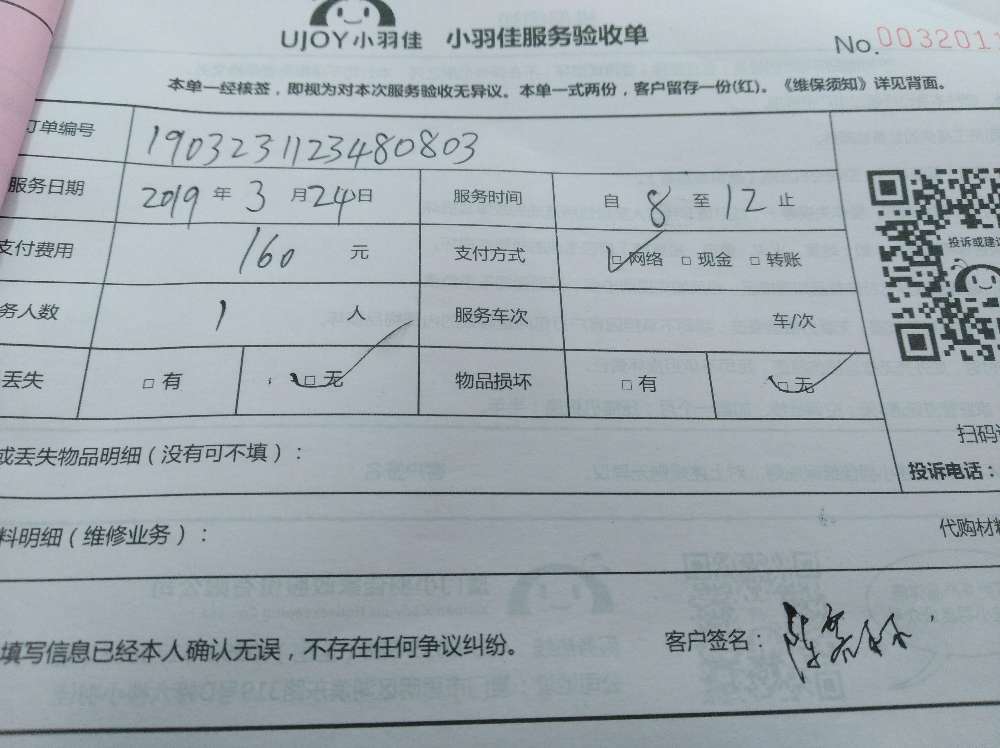 UJOY小羽佳 小羽佳服务验收单
No.0032011
本单一经核签，即视为对本次服务验收无异议。本单一式两份，客户留存一份(红)。《维保须知》详见背面。
订单编号 1903231123480803
服务日期 2019 年 3 月 24 日 服务时间 自 8 至 12 止
支付费用 160 元 支付方式 □网络 □现金 □转账
投诉或建议
务人数 1 人 服务车次 车/次
丢失 □有 □无 物品损坏 □有 □无
扫码
或丢失物品明细（没有可不填）：
投诉电话：
料明细（维修业务）：
代购材料
填写信息已经本人确认无误，不存在任何争议纠纷。 客户签名：